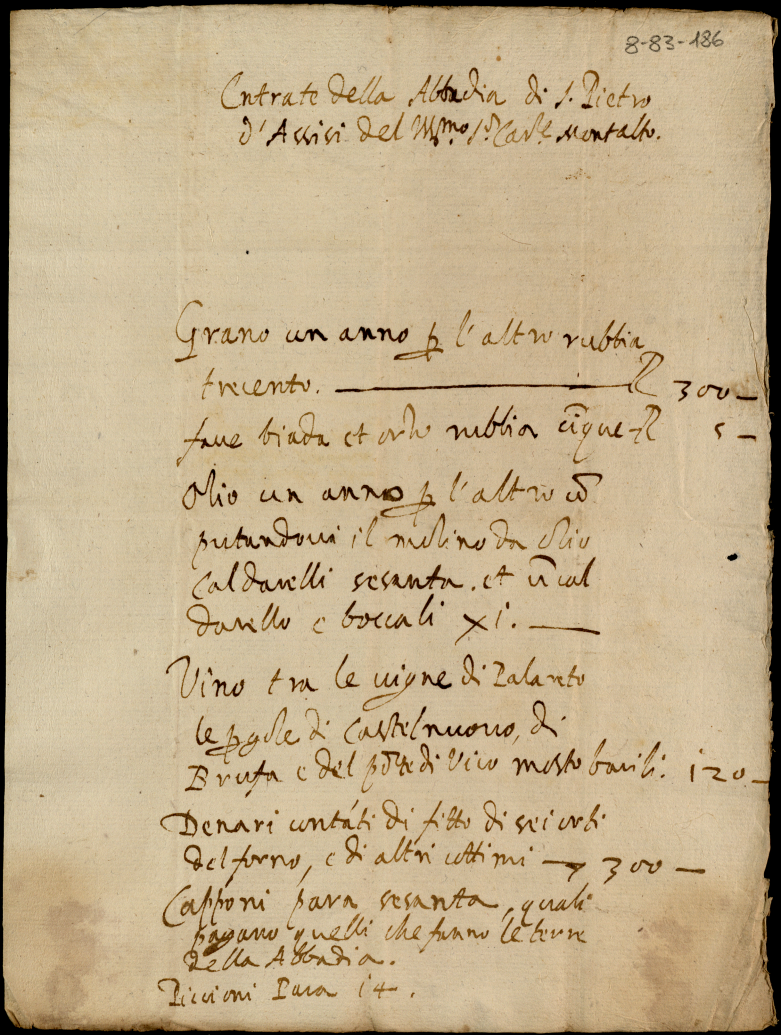 8-83-186
Entrate della Abbadia di S. Pietro
d'Assisi del Ill.mo S.r Car.le Montalto.
Grano un anno p l'altro rubbia
trecento. — R 300 —
faue biada et orzo rubbia cīque - R 5 —
Olio un anno p l'altro cō
putandoui il molino da olio
Caldarelli sesanta. et ū cal
darello e boccali xi. —
Vino tra le uigne di Palareto
le pgole di Castelnuouo, di
Brufa e del pōte di Vico mosto barili. 120 —
Denari contāti di fitto di sei orti
del forno, e di altri cottimi — 300 —
Capponi para sesanta, quali
pagano quelli che fanno le terre
della Abbadia.
Piccioni Para 14.